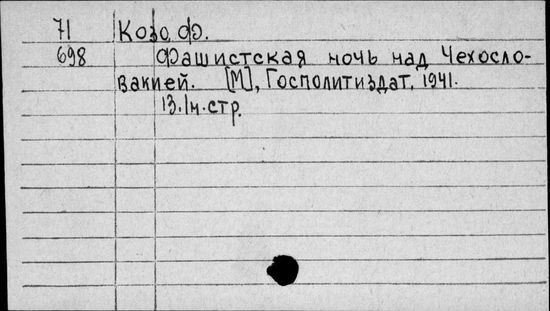 71 Козо, Ф.
698 Фашистская ночь над Чехосло-
вакией. [М], Госполитиздат, 1941.
13.1н.стр.